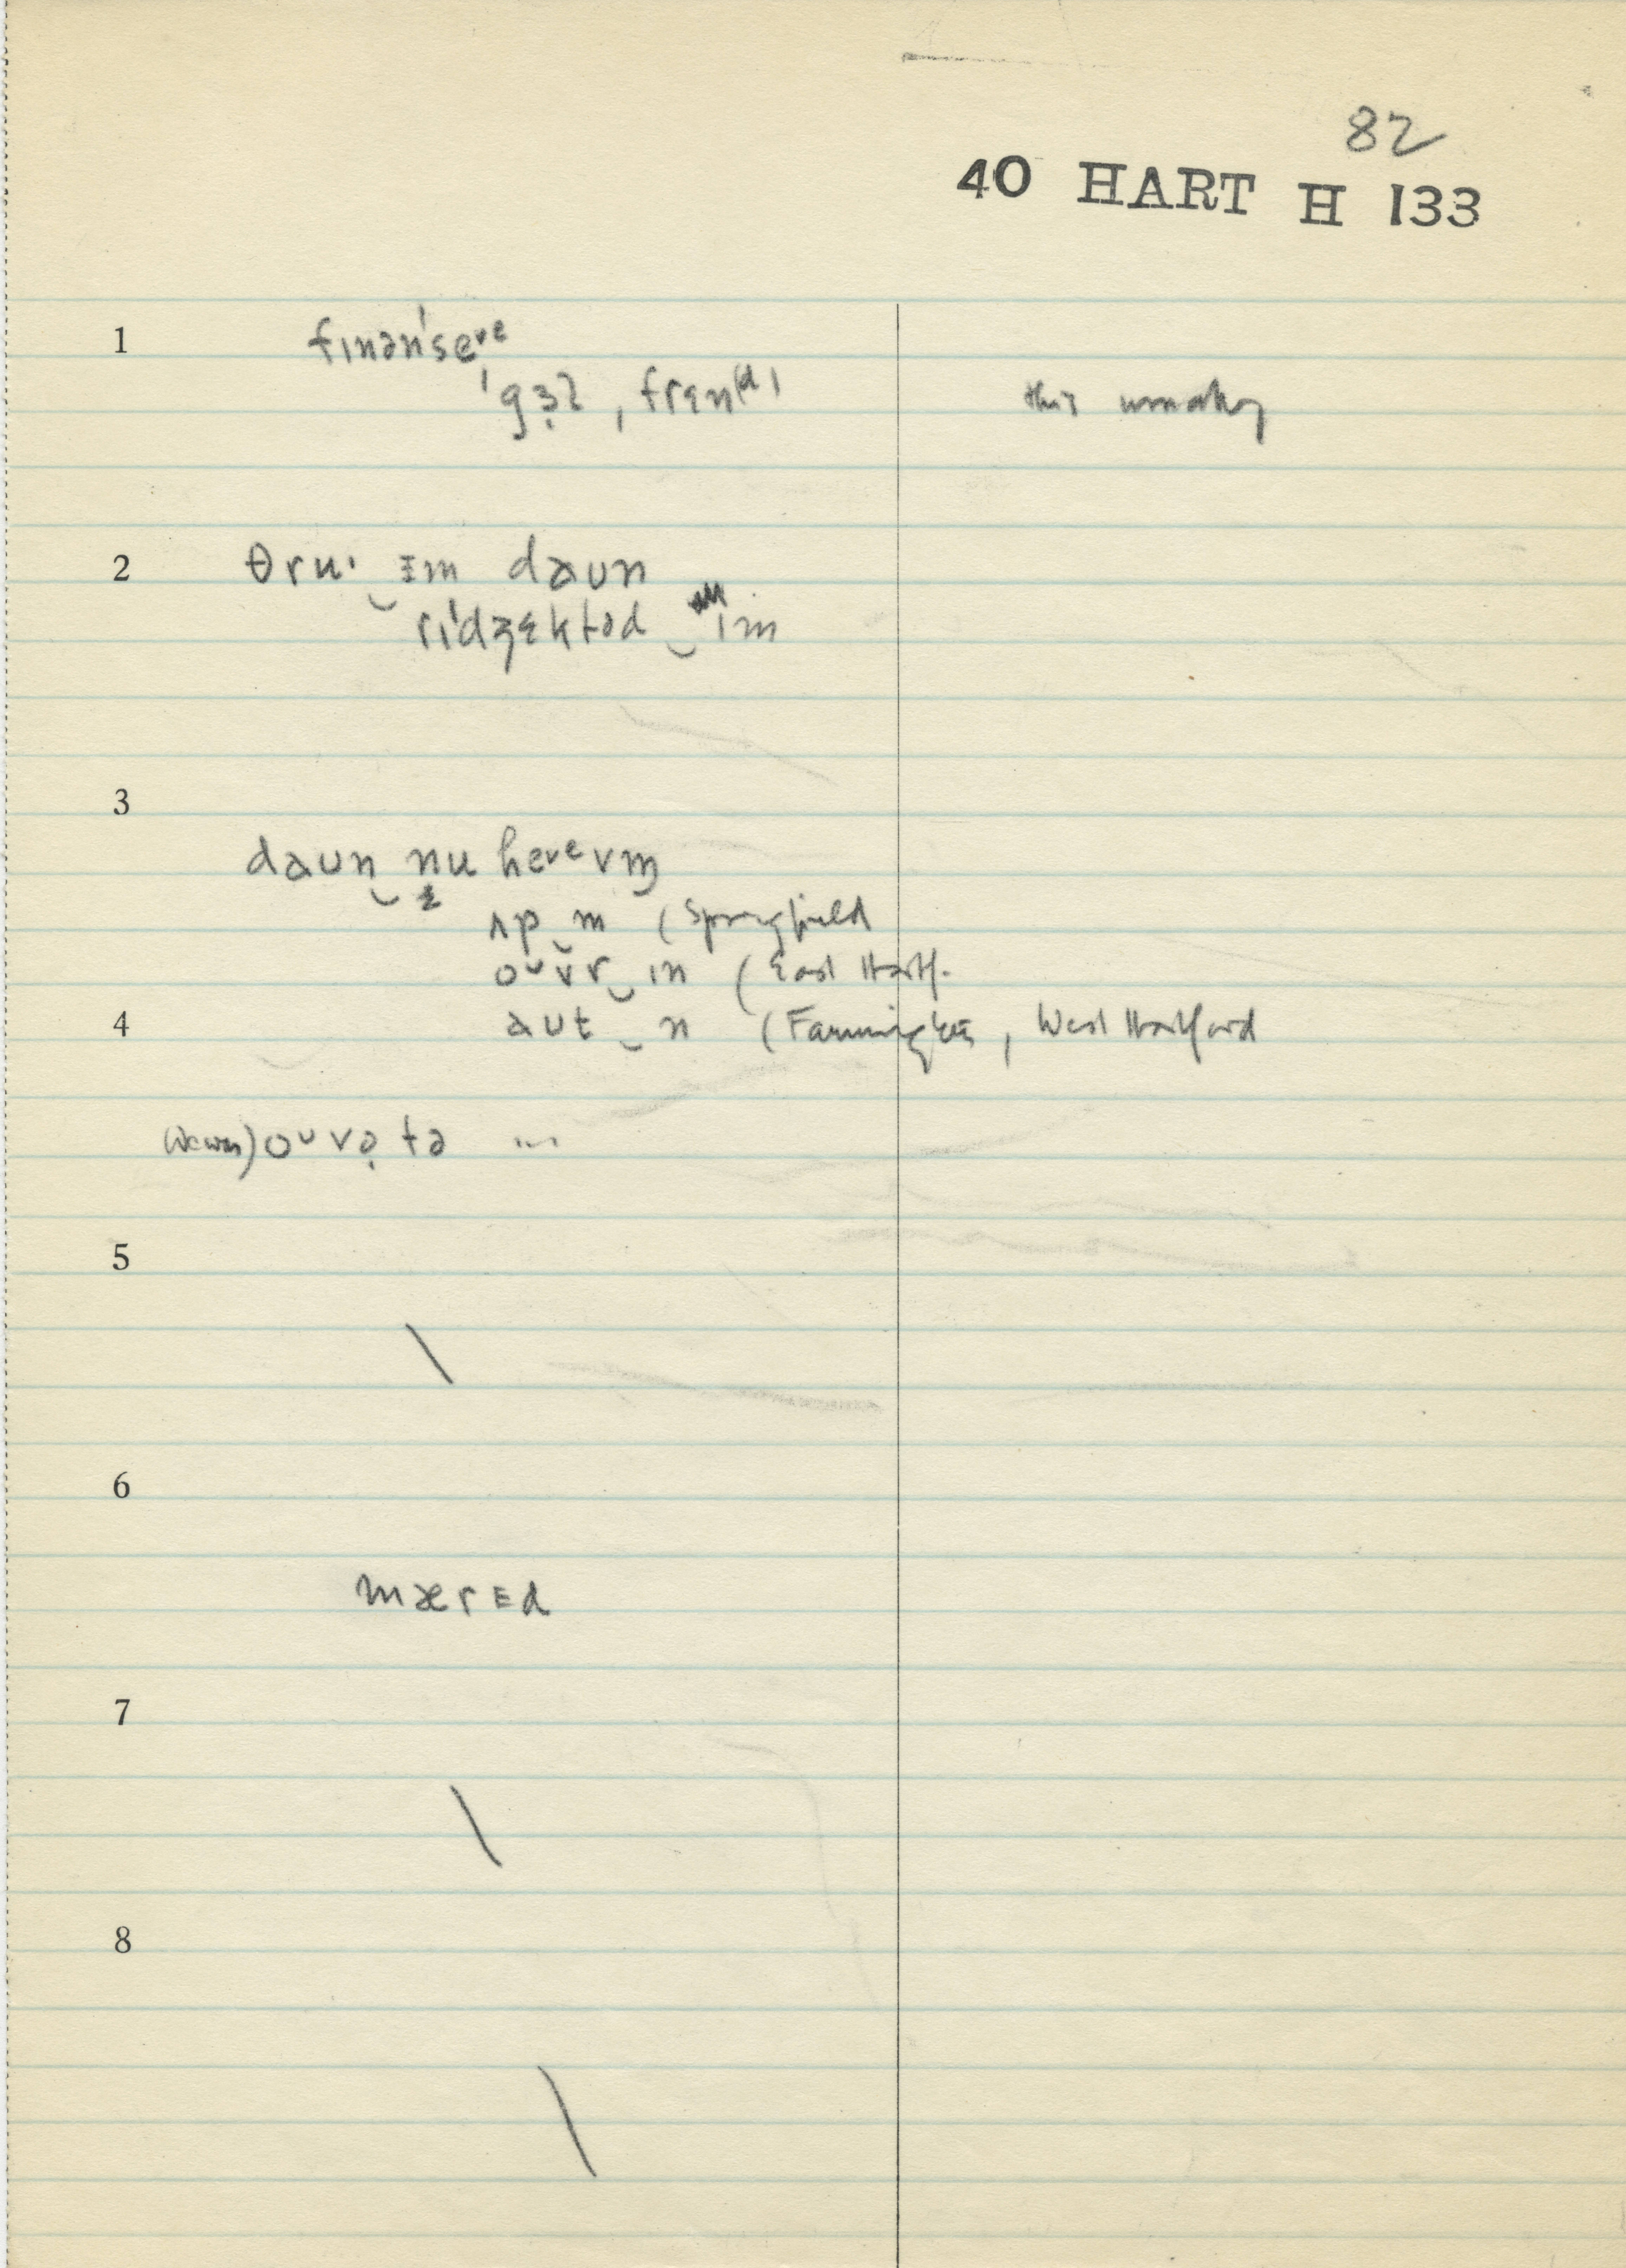 82
40 HART H 133
1 fɪnən'seᵛᵉ
'gɜ̣l, frɛn(d)
2 θru· ‿ ɪm daun
rɪ'dʒɛktəd ‿ ɪm
3
daun ‿ nu hevᵉvm̩
ʌp ‿ ɪn (Springfield
oᵘvr ‿ ɪn (East Hartf.
4 aut ‿ ɪn (Farmington, West Hartford
oᵘvə̣ tə ...
5
\
6
mærɪd
7
\
8
\